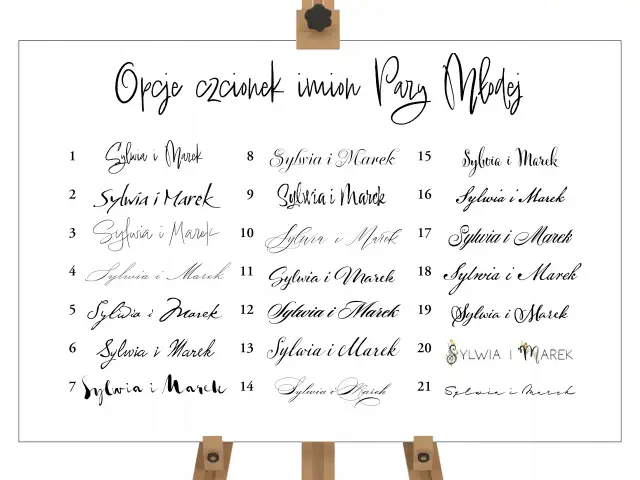 Opcje czcionek imion Pary Młodej
1 Sylwia i Marek
2 Sylwia i Marek
3 Sylwia i Marek
4 Sylwia i Marek
5 Sylwia i Marek
6 Sylwia i Marek
7 Sylwia i Marek
8 Sylwia i Marek
9 Sylwia i Marek
10 Sylwia i Marek
11 Sylwia i Marek
12 Sylwia i Marek
13 Sylwia i Marek
14 Sylwia i Marek
15 Sylwia i Marek
16 Sylwia i Marek
17 Sylwia i Marek
18 Sylwia i Marek
19 Sylwia i Marek
20 SYLWIA I MAREK
21 Sylwia i Marek